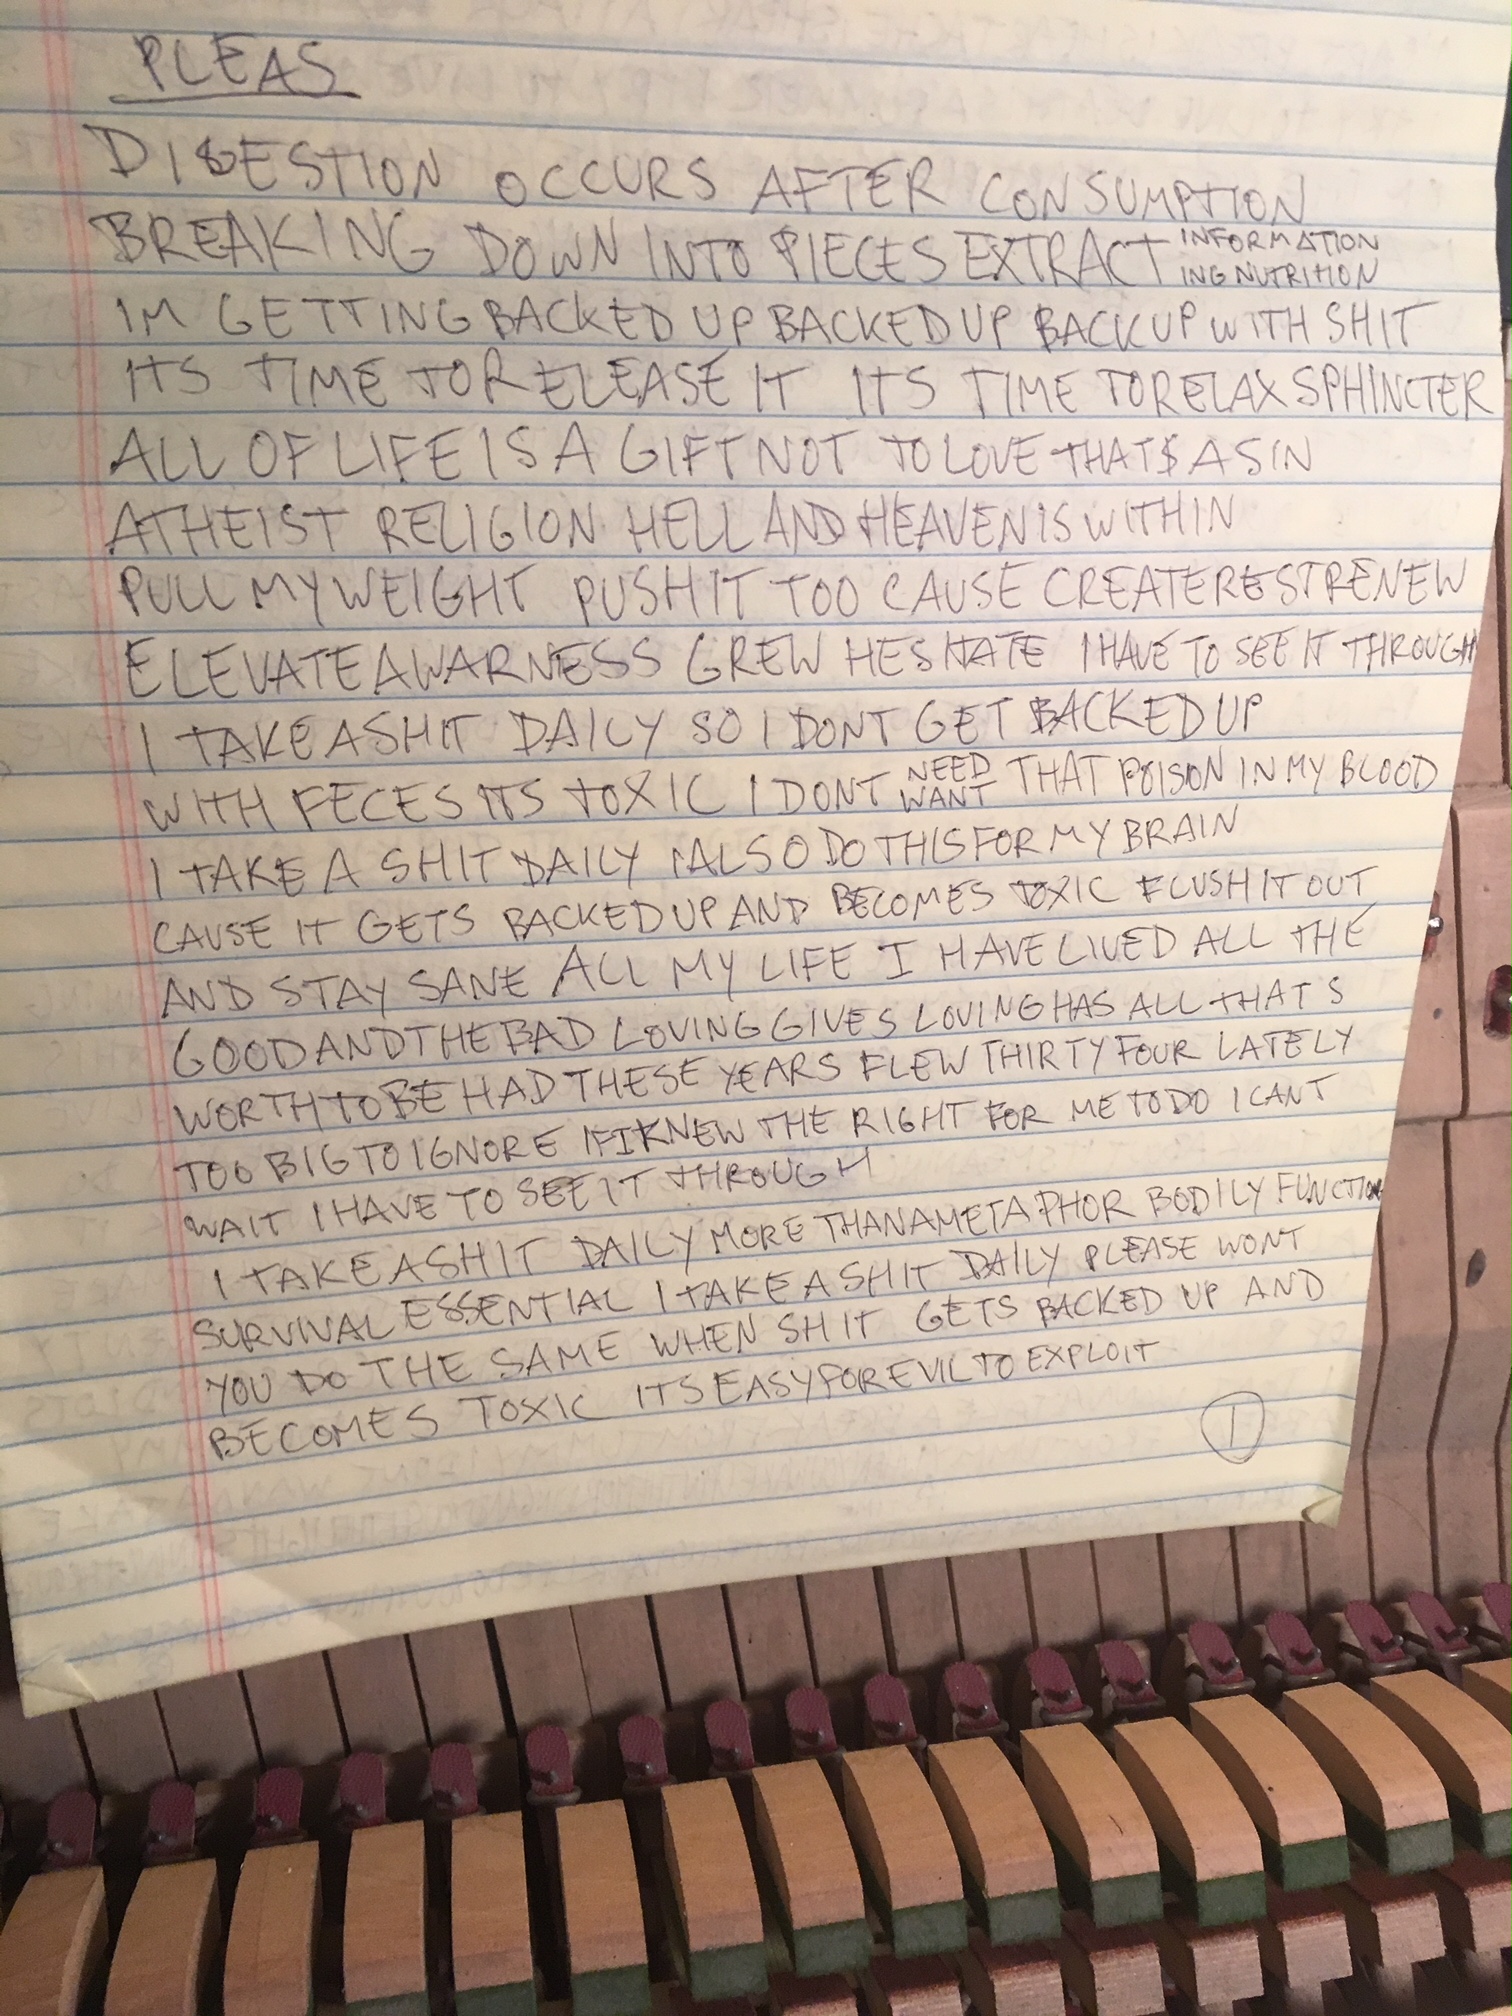 PLEAS
DIGESTION OCCURS AFTER CONSUMPTION
BREAKING DOWN INTO PIECES EXTRACT INFORMATION
ING NUTRITION
IM GETTING BACKED UP BACKED UP BACK UP WITH SHIT
ITS TIME TO RELEASE IT ITS TIME TO RELAX SPHINCTER
ALL OF LIFE IS A GIFT NOT TO LOVE THATS A SIN
ATHEIST RELIGION HELL AND HEAVEN IS WITHIN
PULL MY WEIGHT PUSH IT TOO CAUSE CREATE REST RENEW
ELEVATE AWARNESS GREW HESITATE I HAVE TO SEE IT THROUGH
I TAKE A SHIT DAILY SO I DONT GET BACKED UP
WITH FECES ITS TOXIC I DONT NEED WANT THAT POISON IN MY BLOOD
I TAKE A SHIT DAILY I ALSO DO THIS FOR MY BRAIN
CAUSE IT GETS BACKED UP AND BECOMES TOXIC FLUSH IT OUT
AND STAY SANE ALL MY LIFE I HAVE LIVED ALL THE
GOOD AND THE BAD LOVING GIVES LOVING HAS ALL THATS
WORTH TO BE HAD THESE YEARS FLEW THIRTY FOUR LATELY
TOO BIG TO IGNORE IF I KNEW THE RIGHT FOR ME TO DO I CANT
WAIT I HAVE TO SEE IT THROUGH
I TAKE A SHIT DAILY MORE THAN A METAPHOR BODILY FUNCTION
SURVIVAL ESSENTIAL I TAKE A SHIT DAILY PLEASE WONT
YOU DO THE SAME WHEN SHIT GETS BACKED UP AND
BECOMES TOXIC ITS EASY FOR EVIL TO EXPLOIT
1